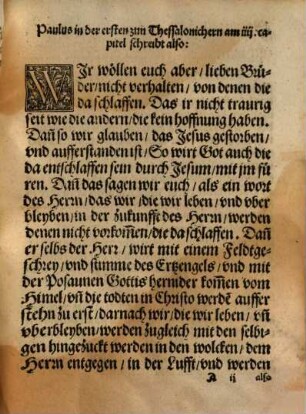 Paulus in der ersten zun Thessalonichern am iiij. ca-
pitel schreibt also:
WIr wöllen euch aber/ lieben Brü-
der/nicht verhalten/von denen die
da schlaffen. Das ir nicht traurig
seit wie die andern/die kein hoffnung haben.
Dañ so wir glauben/das Jesus gestorben/
vnd aufferstanden ist/So wirt Got auch die
da entschlaffen sein durch Jesum/mit jm fü-
ren. Dañ das sagen wir euch/als ein wort
des Herrn/das wir/die wir leben/vnd vber
bleyben/in der zukunfft des Herrn/werden
denen nicht vorkom̃en/die da schlaffen. Dañ
er selbs der Herr/wirt mit einem Feldtge-
schrey/vnd stimme des Ertzengels/vnd mit
der Posaunen Gottis hernider kom̃en vom
Himel/vñ die todten in Christo werdẽ auffer
stehn zu erst/darnach wir/die wir leben/vñ
vberbleyben/werden zugleich mit den selbi-
gen hingezuckt werden in den wolcken/dem
Herrn entgegen/in der Lufft/vnd werden
A ij also